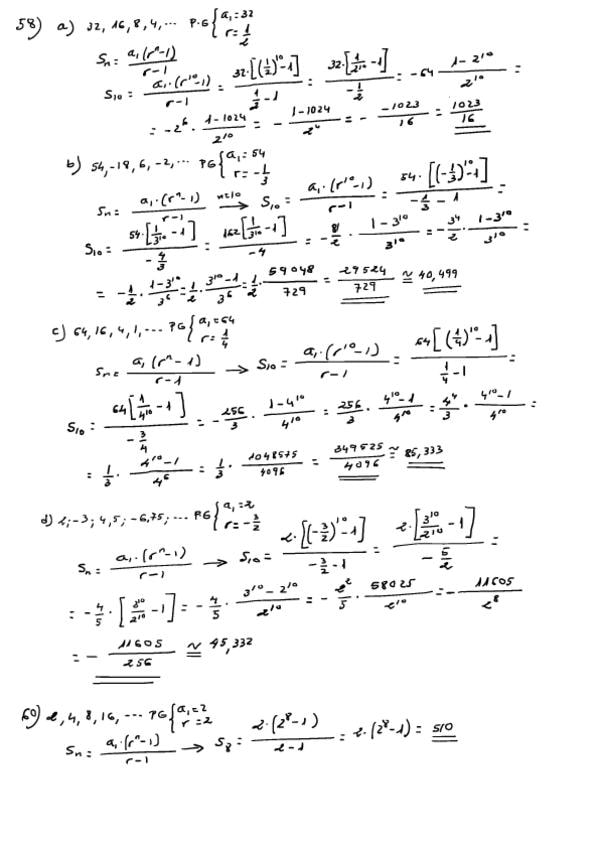 58) a) 32, 16, 8, 4, ... P.G { a₁ = 32  r = 1/2
Sn = a₁(rⁿ-1)/(r-1)
S₁₀ = a₁.(r¹⁰-1)/(r-1) = 32.[(1/2)¹⁰-1]/(1/2-1) = 32.[1/2¹⁰-1]/(-1/2) = -64 (1-2¹⁰)/2¹⁰ =
= -2⁶. (1-1024)/2¹⁰ = - (1-1024)/2⁴ = - (-1023)/16 = 1023/16
b) 54, -18, 6, -2, ... PG { a₁ = 54  r = -1/3
Sn = a₁.(rⁿ-1)/(r-1) n=10 → S₁₀ = a₁.(r¹⁰-1)/(r-1) = 54.[(-1/3)¹⁰-1]/(-1/3 - 1) =
S₁₀ = 54.[1/3¹⁰ -1]/(-4/3) = 162[1/3¹⁰ -1]/(-4) = -81/2 . (1-3¹⁰)/3¹⁰ = -3⁴/2 . (1-3¹⁰)/3¹⁰ =
= -1/2 . (1-3¹⁰)/3⁶ = 1/2 . (3¹⁰-1)/3⁶ = 1/2 . 59048/729 = 29524/729 ≈ 40,499
c) 64, 16, 4, 1, ... PG { a₁ = 64  r = 1/4
Sn = a₁(rⁿ-1)/(r-1) → S₁₀ = a₁.(r¹⁰-1)/(r-1) = 64[(1/4)¹⁰-1]/(1/4-1) =
S₁₀ = 64[1/4¹⁰ -1]/(-3/4) = -256/3 . (1-4¹⁰)/4¹⁰ = 256/3 . (4¹⁰-1)/4¹⁰ = 4⁴/3 . (4¹⁰-1)/4¹⁰ =
= 1/3 . (4¹⁰-1)/4⁶ = 1/3 . 1048575/4096 = 349525/4096 ≈ 85,333
d) 2; -3; 4,5; -6,75; ... PG { a₁ = 2  r = -3/2
Sn = a₁.(rⁿ-1)/(r-1) → S₁₀ = 2.[(-3/2)¹⁰-1]/(-3/2-1) = 2.[3¹⁰/2¹⁰ -1]/(-5/2) =
= -4/5 . [3¹⁰/2¹⁰ -1] = -4/5 . (3¹⁰-2¹⁰)/2¹⁰ = -2²/5 . 58025/2¹⁰ = -11605/2⁸
= - 11605/256 ≈ 45,332
60) 2, 4, 8, 16, ... PG { a₁ = 2  r = 2
Sn = a₁.(rⁿ-1)/(r-1) → S₈ = 2.(2⁸-1)/(2-1) = 2.(2⁸-1) = 510